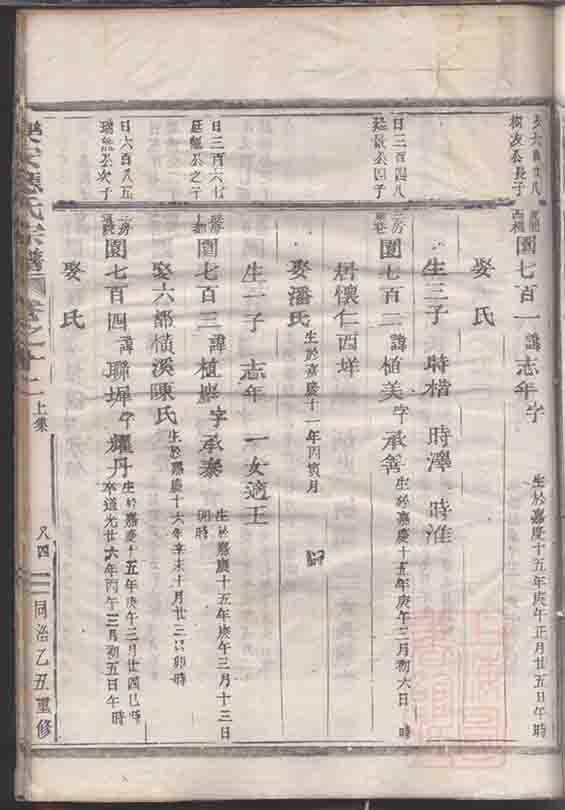 樹友公長子
園七百一諱志年字
生於嘉慶十五年庚午正月廿五日午時
娶氏
生三子 時楷 時澤 時淮
日三百四八
公四子
園七百二諱植美字承善
生於嘉慶十五年庚午三月初六日 時
居懷仁西垟
娶潘氏
生於嘉慶十一年丙寅月
生一子 志年 一女適王
日三百六七
公之子
園七百三諱植 字承泰
生於嘉慶十五年庚午三月十三日卯時
娶六都橫溪陳氏
生於嘉慶十六年辛未十月廿三日卯時
日六百八五
公次子
園七百四諱聯墀字耀丹
生於嘉慶十五年庚午三月廿四巳時
卒道光廿六年丙午三月初五日午時
娶氏
氏宗譜 卷之十二 上集
又四
同治乙丑重修